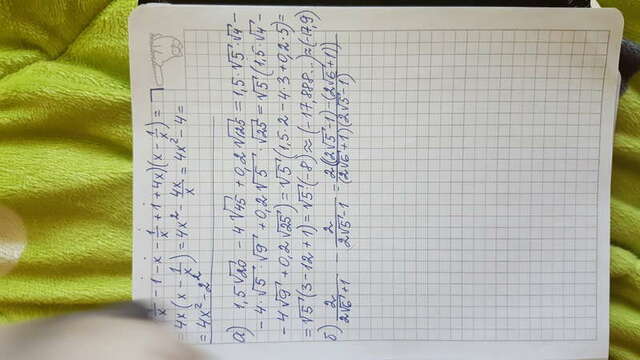 1/x - 1 - x - 1/x + 1 + 4x)(x - 1/x) =
= 4x(x - 1/x) = 4x² - 4x/x = 4x² - 4 =
= 4x² - 2²
а) 1,5√20 - 4√45 + 0,2√125 = 1,5·√5·√4 -
- 4·√5·√9 + 0,2√5·√25 = √5(1,5·√4 -
- 4√9 + 0,2√25) = √5(1,5·2 - 4·3 + 0,2·5) =
= √5(3 - 12 + 1) = √5(-8) ≈ (-17,888...) ≈ (-17,9)
б) 2/(2√6 + 1) - 2/(2√5 - 1) = 2((2√5 - 1) - (2√6 + 1))/((2√6 + 1)(2√5 - 1))